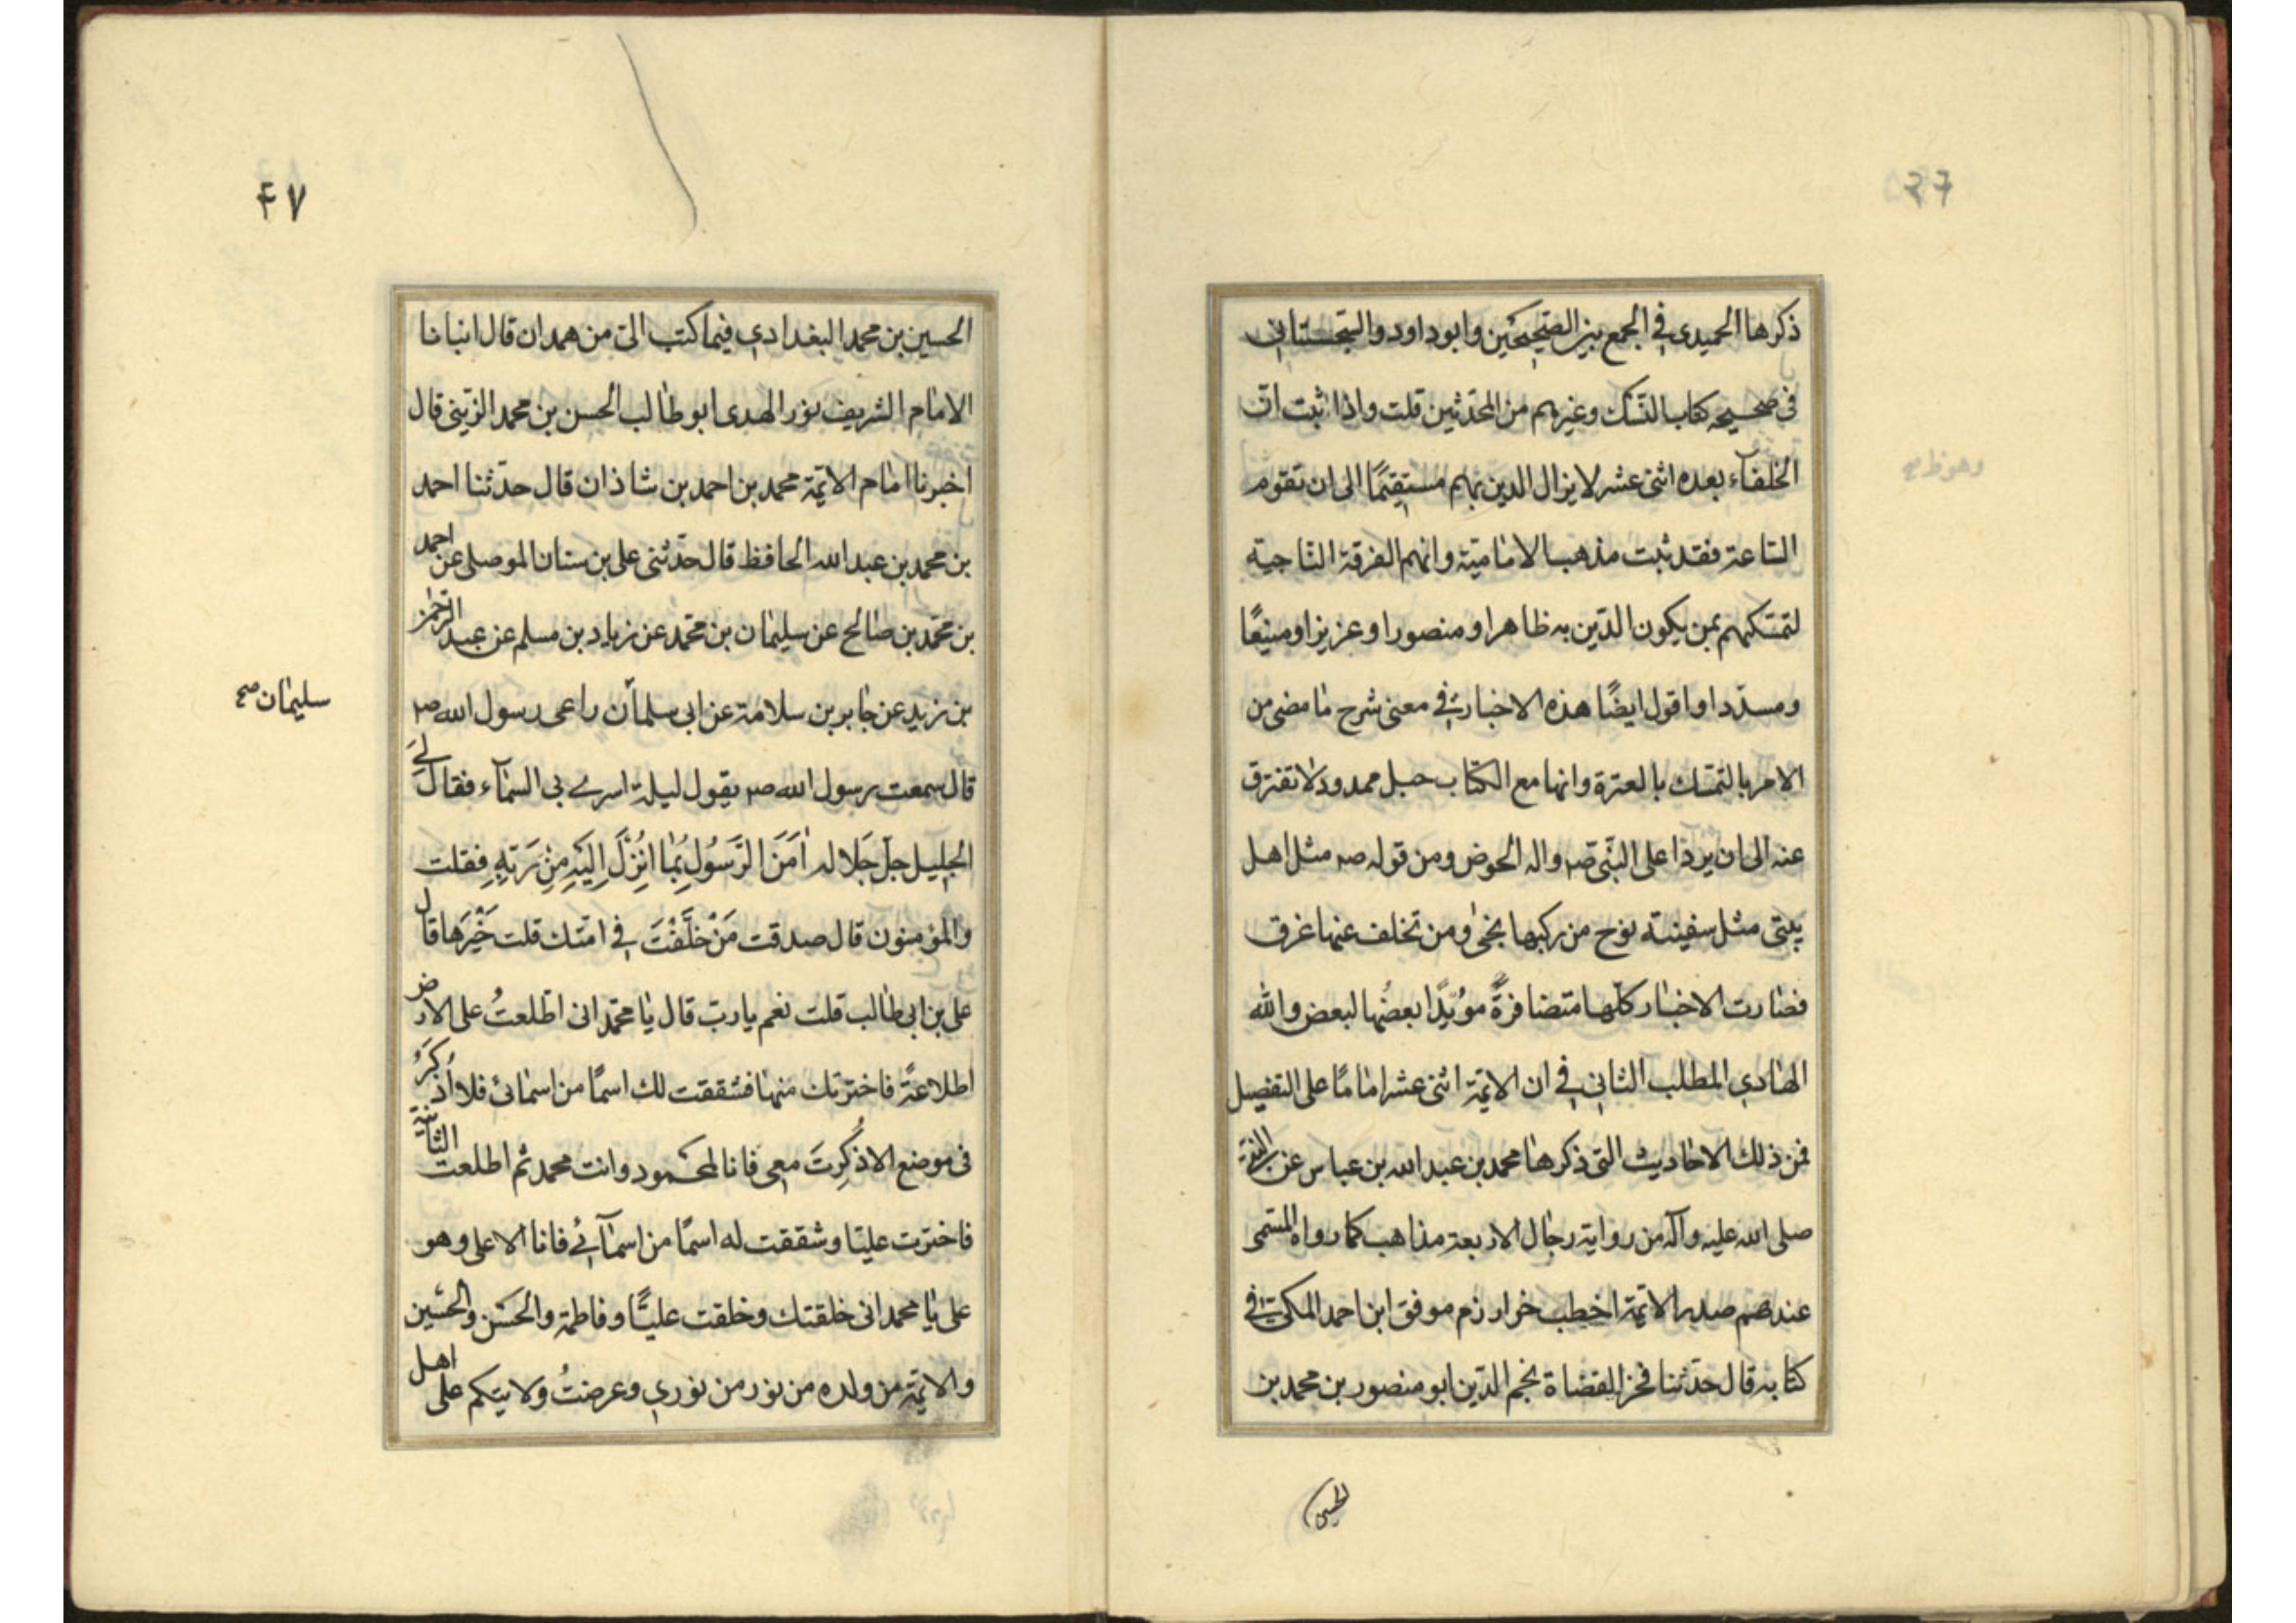 ذكرها الحميدى في الجمع بين الصّحيحَين وابو داود والسّجستاني
فى صحيحه كتاب النّسك وغيرهم من المحدّثين قلت واذا ثبت انّ
الخلفآء بعده اثنى عشر لا يزال الدين بهم مستقيمًا الى ان تقوم
السّاعة فقد ثبت مذهب الاماميّة وانهم الفرقة النّاجية
لتمسّكهم بمن يكون الدّين به ظاهرا ومنصورا وعزيزا ومنيعًا
ومسدّدا واقول ايضًا هذه الاخبار في معنى شرح ما مضى من
الامر بالتمسّك بالعترة وانها مع الكتاب حبل ممدود لا تفترق
عنه الى ان يردا على النبّى صم واله الحوض ومن قوله صم مثل اهل
بيتى مثل سفينة نوح من ركبها نجى ومن تخلف عنها غرق
فصارت الاخبار كلّها متضافرةً مؤيّدًا بعضُها لبعض والله
الهادي المطلب الثاني في ان الائمّة اثنى عشر امامًا على التفصيل
فمن ذلك الاحاديث التى ذكرها محمد بن عبد الله بن عباس عن النبىّ
صلى الله عليه وآله من رواية رجال الاربعة مذاهب كما رواه المسّمى
عندهم صدر الائمّة اخطب خوارزم موفق ابن احمد المكىّ في
كتابه قال حدّثنا فخر القضاة نجم الدّين ابو منصور بن محمد بن
الحسين
٤٧
الحسين بن محمد البغدادي فيما كتب الىّ من همدان قال انبانا
الامام الشريف نور الهدى ابو طالب الحسن بن محمد الزّينى قال
اخبرنا امام الائمّة محمد بن احمد بن شاذان قال حدّثنا احمد
بن محمد بن عبد الله الحافظ قال حدّثنى على بن سنان الموصلى عن احمد
بن محمّد بن صالح عن سليمان بن محمّد عن زياد بن مسلم عن عبد الرّحمن
بن زيد عن جابر بن سلامة عن ابى سلمان راعى رسول الله صم
سليمان صح
قال سمعت رسول الله صم يقول ليلة اسرى بى السمآء فقال لي
الجليل جلّ جَلاله اٰمَنَ الرَّسُولُ بِمٰا اُنْزِلَ اِلَيْهِ مِنْ رَبِّهِ فقلت
والمؤمنون قال صدقت مَنْ خَلَّفْتَ في امّتك قلت خَيْرَها قال
على بن ابى طالب قلت نعم يا ربّ قال يا محمّد انى اطّلعتُ على الارض
اطلاعةً فاخترتك منها فشققت لك اسمًا من اسمائى فلا اُذكَرُ
فى موضع الا ذُكِرتَ معى فانا المحمود وانت محمد ثم اطلعت الثانية
فاخترت عليّا وشققت له اسمًا من اسمآئي فانا الاعلى وهو
على يا محمد انى خلقتك وخلقت عليًّا وفاطمة والحسَن والحسَين
والائمّة من ولده من نور من نوري وعرضتُ ولايتكم على اهل